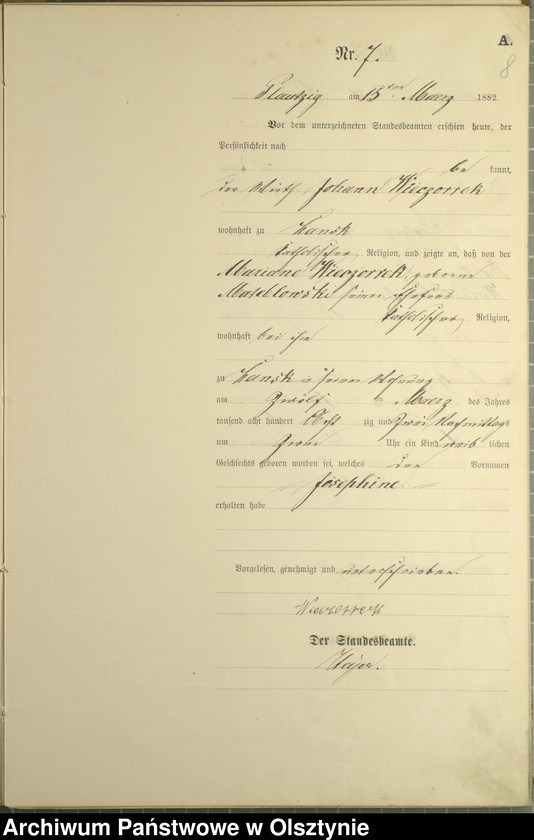 A.
8
Nr. 7.
Plautzig am 13ten Maerz 1882.
Vor dem unterzeichneten Standesbeamten erschien heute, der
Persönlichkeit nach
be kannt,
der Wirth Johann Wieczorrek
wohnhaft zu Lansk
katholischer Religion, und zeigte an, daß von der
Mariane Wieczorrek, geborne
seiner Ehefrau
katholischer Religion,
wohnhaft bei ihm
zu Lansk in seiner Wohnung
am Zwölf ten Maerz des Jahres
tausend acht hundert Acht zig und Zwei Nachmittags
um Zwei Uhr ein Kind weib lichen
Geschlechts geboren worden sei, welches den Vornamen
Josephine
erhalten habe
Vorgelesen, genehmigt und unterschrieben.
Wieczorrek
Der Standesbeamte.
Archiwum Państwowe w Olsztynie